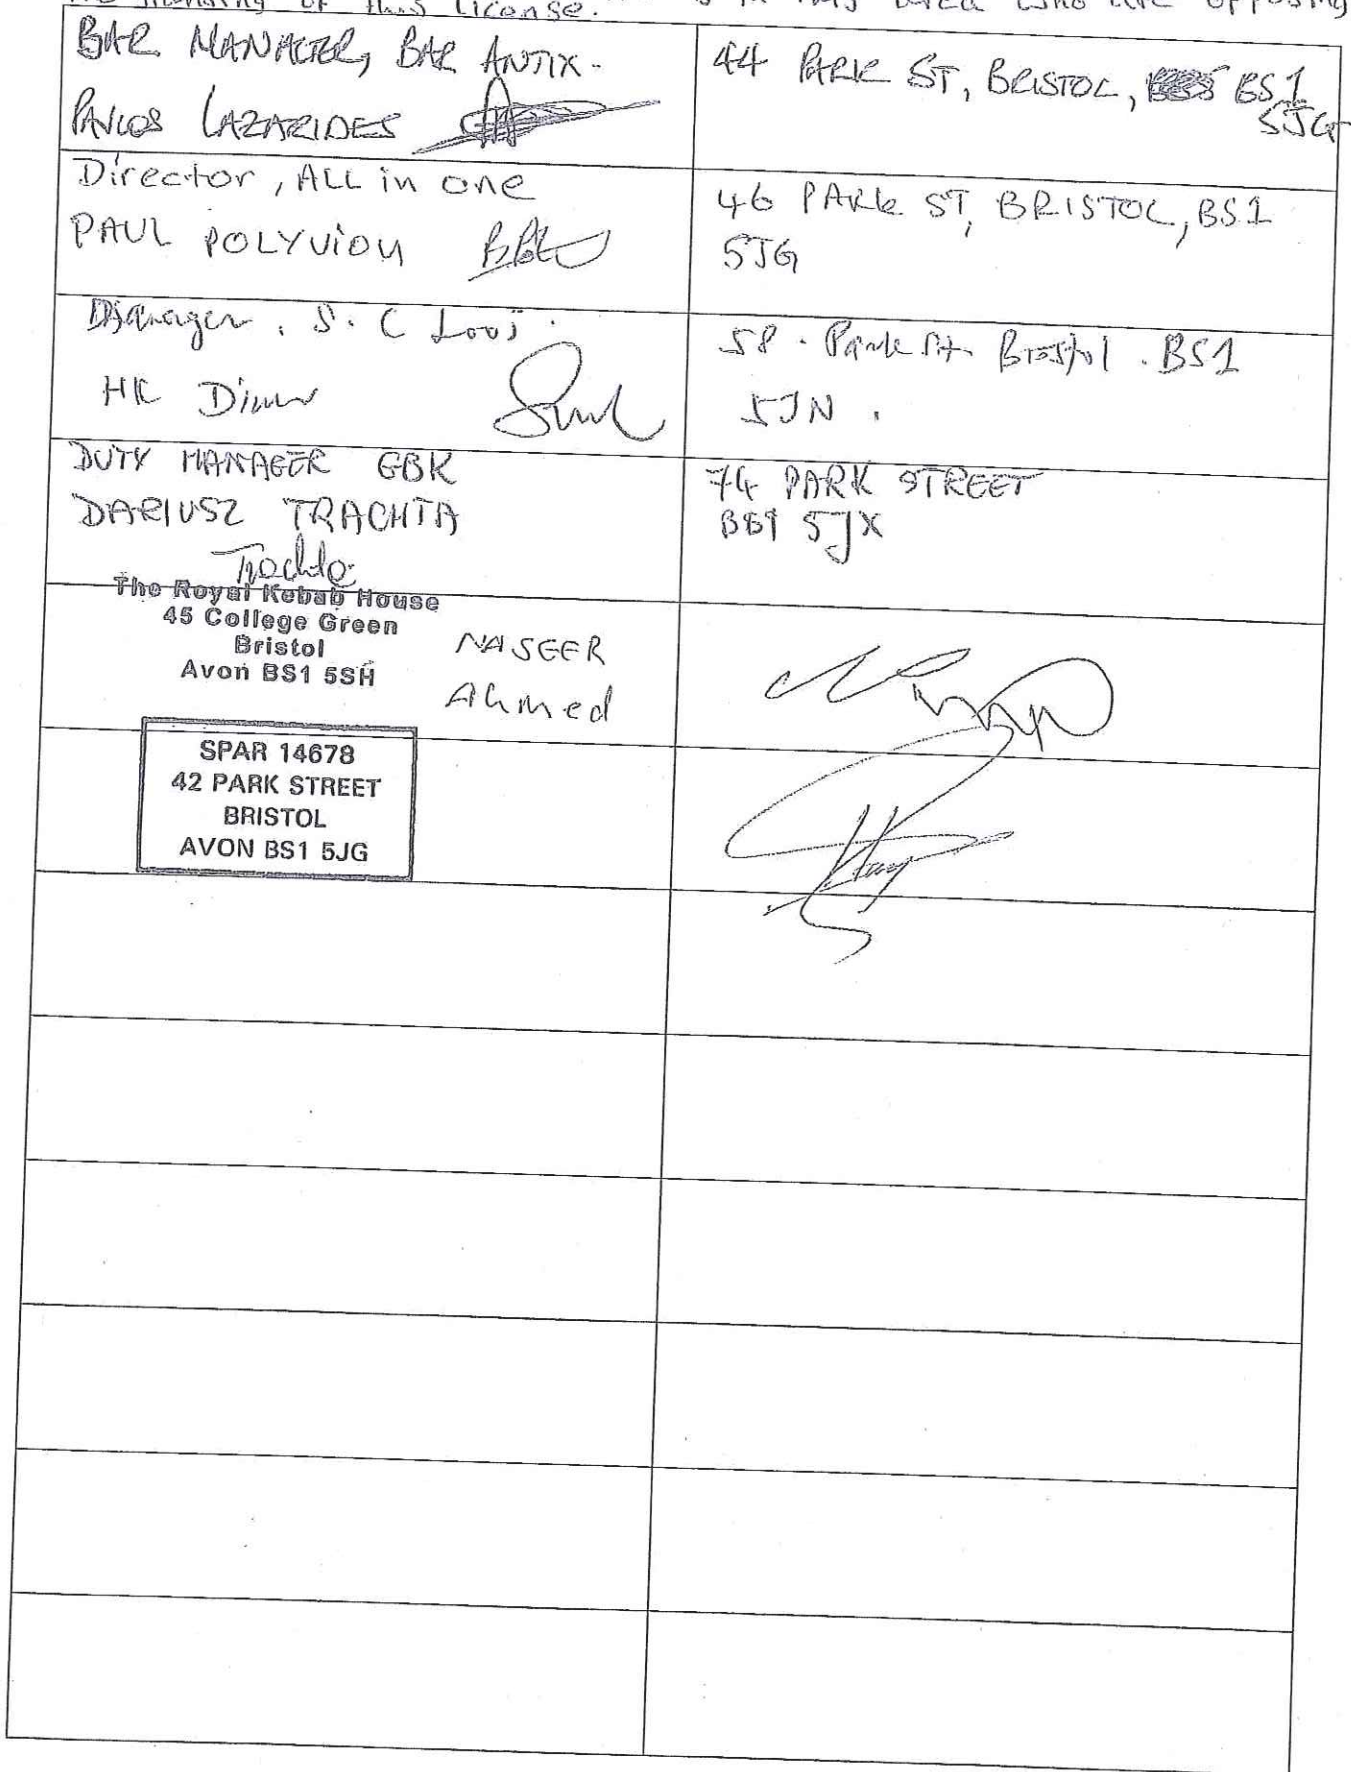 of this license. in this area who are opposing
BAR MANAGER, BAR ANTIX.
PAVLOS LAZARIDES
44 PARK ST, BRISTOL, BS1
5JG
Director, ALL in one
PAUL POLYVIOU
46 PARK ST, BRISTOL, BS1
5JG
S. C Looi.
HK Diner
58. Park St. Bristol. BS1
5JN.
DUTY MANAGER GBK
DARIUSZ TRACHTA
Trachta
74 PARK STREET
BS1 5JX
The Royal Kebab House
45 College Green
Bristol
Avon BS1 5SH
NASEER
Ahmed
SPAR 14678
42 PARK STREET
BRISTOL
AVON BS1 5JG